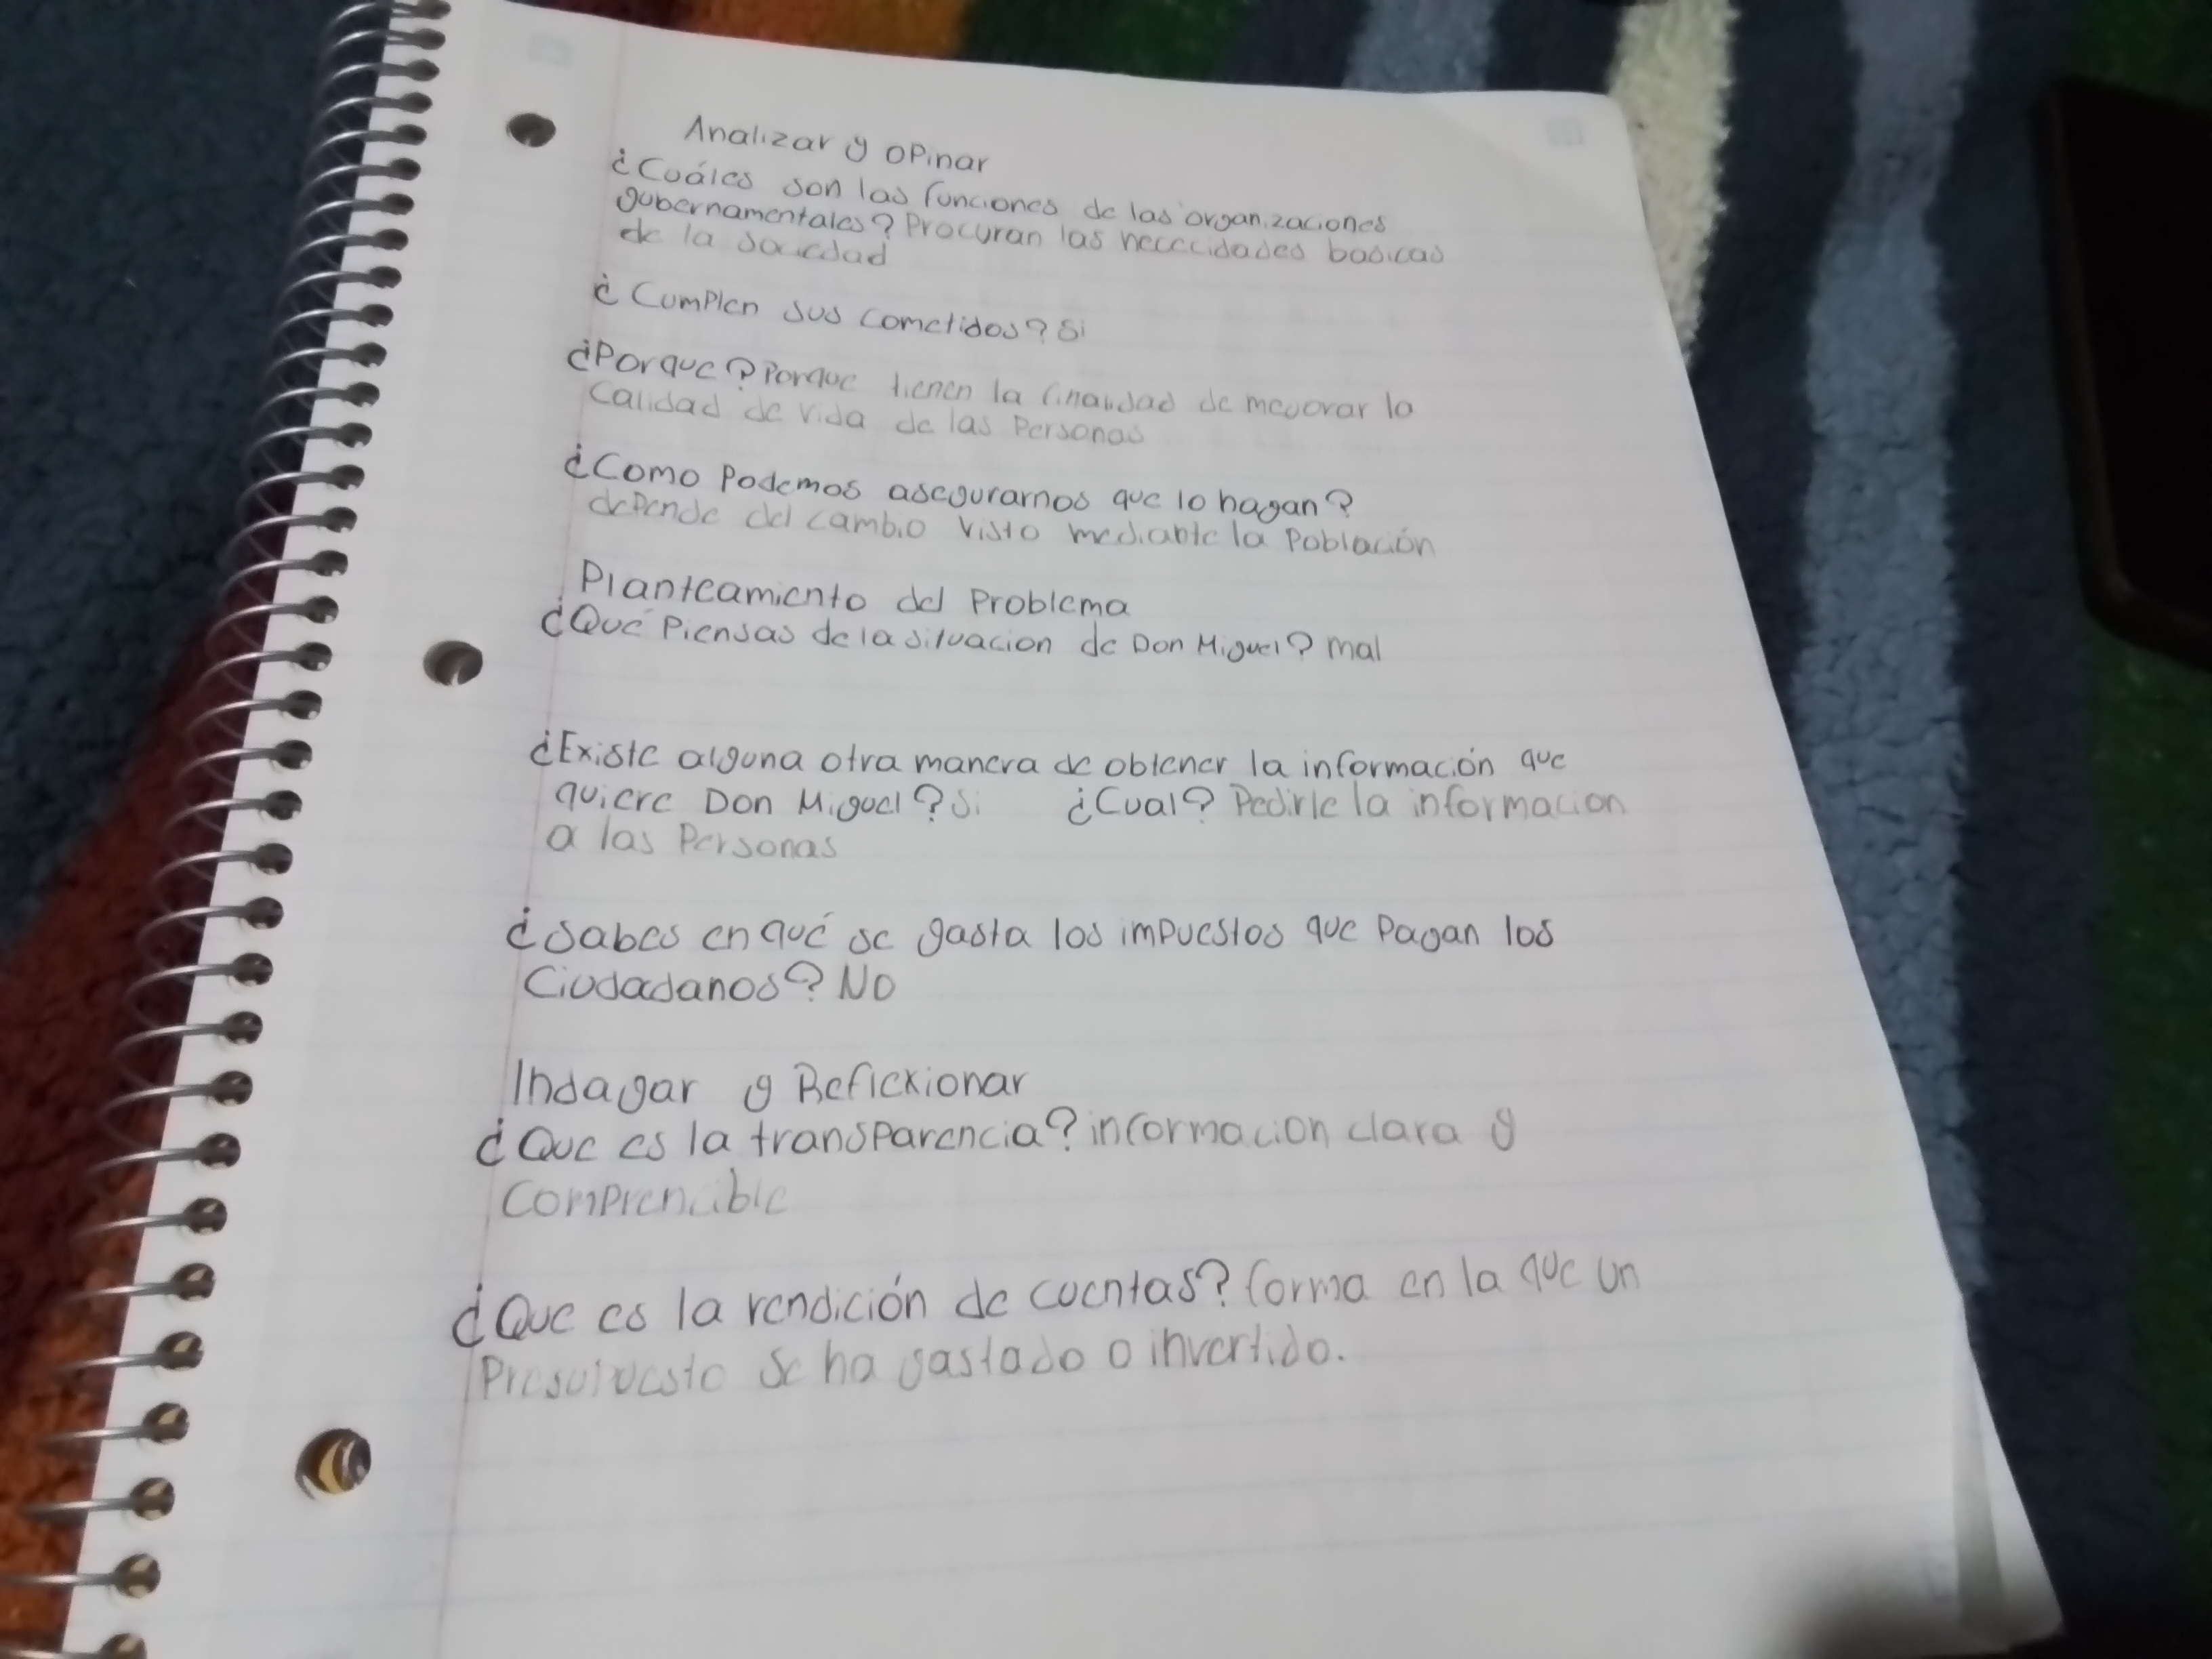 Analizar y opinar
¿Cuáles son las funciones de las organizaciones
gubernamentales? Procuran las nececidades basicas
de la sociedad
¿Cumplen sus cometidos? Si
¿Porque? Porque tienen la finalidad de mejorar la
calidad de vida de las Personas
¿Como Podemos asegurarnos que lo hagan?
depende del cambio visto mediante la Población
Planteamiento del Problema
¿Qué Piensas de la situacion de Don Miguel? mal
¿Existe alguna otra manera de obtener la información que
quiere Don Miguel? Si ¿Cual? Pedirle la informacion
a las Personas
¿Sabes en qué se gasta los impuestos que Pagan los
Ciudadanos? No
Indagar y Reflexionar
¿Que es la transparencia? informacion clara y
comprencible
¿Que es la rendición de cuentas? forma en la que un
Presupuesto se ha gastado o invertido.